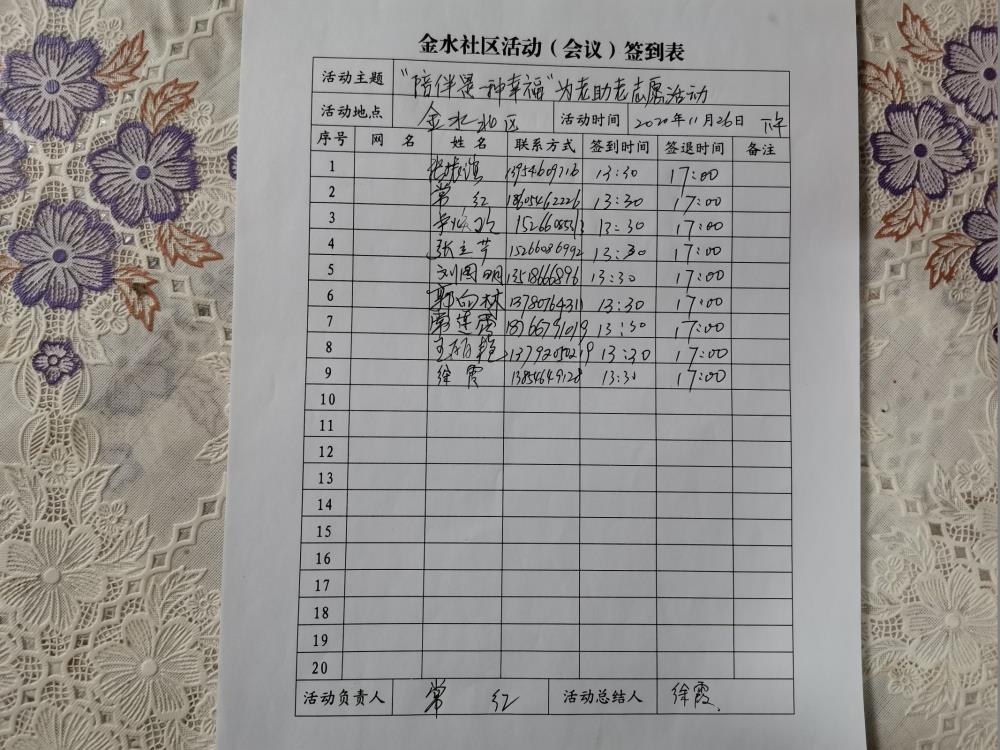 金水社区活动（会议）签到表
活动主题 “陪伴是一种幸福”为老助老志愿活动
活动地点 金水社区 活动时间 2020年11月26日 下午
序号 网 名 姓 名 联系方式 签到时间 签退时间 备注
1 13:30 17:00
2 常 红 18605462226 13:30 17:00
3 13:30 17:00
4 张立芹 15266086992 13:30 17:00
5 刘国明 13518666896 13:30 17:00
6 郭向林 13780764311 13:30 17:00
7 18765791019 13:30 17:00
8 13792050219 13:30 17:00
9 徐 霞 13854649128 13:30 17:00
10
11
12
13
14
15
16
17
18
19
20
活动负责人 常 红 活动总结人 徐霞